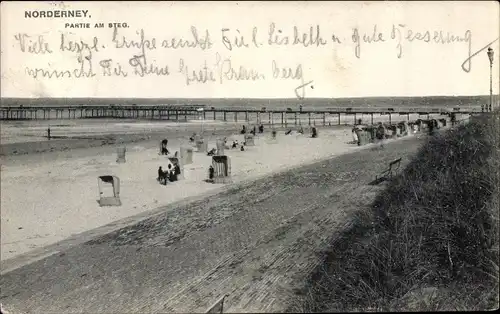 NORDERNEY,
PARTIE AM STEG.
Viele herzl. Grüße sendet Dir l. Lisbeth u. gute Besserung
wünscht Dir Deine Grete Kramberg